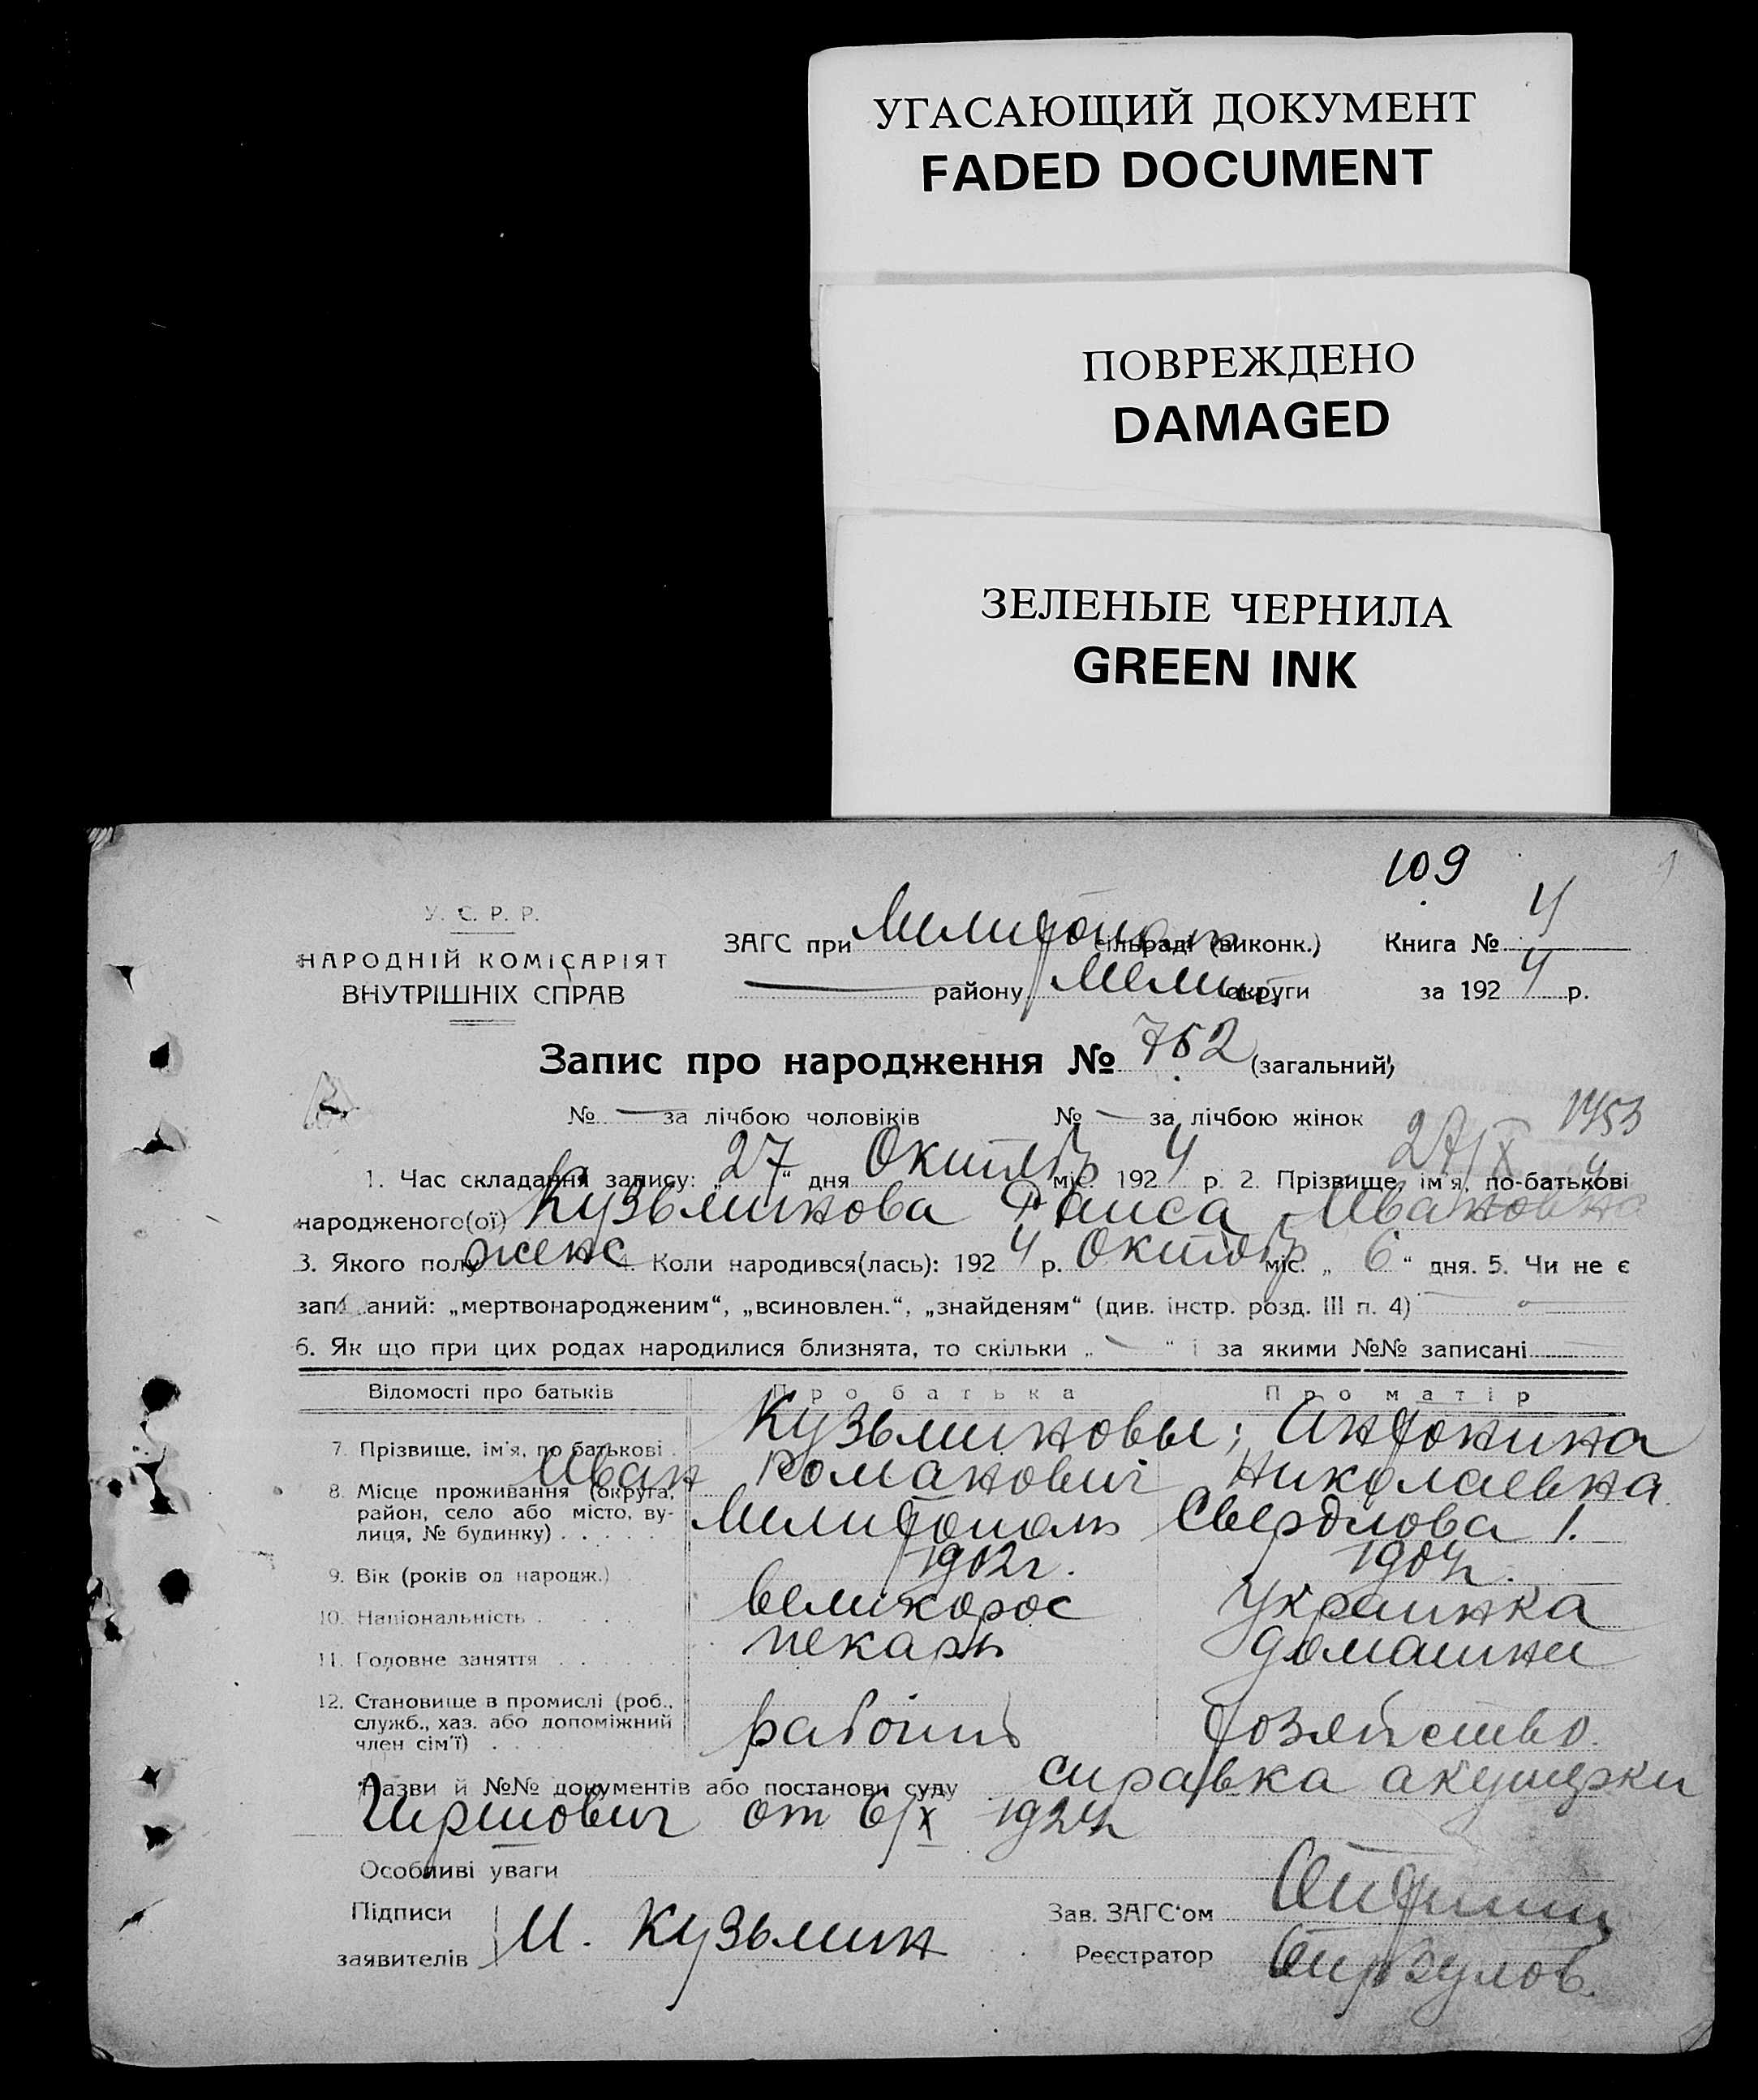 УГАСАЮЩИЙ ДОКУМЕНТ
FADED DOCUMENT
ПОВРЕЖДЕНО
DAMAGED
ЗЕЛЕНЫЕ ЧЕРНИЛА
GREEN INK
109
У. С. Р. Р.
НАРОДНІЙ КОМІСАРІЯТ
ВНУТРІШНІХ СПРАВ
ЗАГС при Мелитополь сільраді (виконк.) Книга № 4
району Мелит округи за 1924 р.
Запис про народження № 752 (загальний)
№ — за лічбою чоловіків № — за лічбою жінок
27/X 1953
1. Час складання запису: „27“ дня Октябр міс. 1924 р. 2. Прізвище, ім'я, по-батькові
народженого(ої) Кузьминова Раиса Ивановна
3. Якого полу женс 4. Коли народився(лась): 1924 р. Октябр міс. „6“ дня. 5. Чи не є
записаний: „мертвонародженим“, „всиновлен.“, „знайденям“ (див. інстр. розд. III п. 4) —
6. Як що при цих родах народилися близнята, то скільки „—“ і за якими №№ записані
Відомості про батьків Про батька Про матір
7. Прізвище, ім'я, по батькові Кузьминовы; Антонина
Иван Романович Николаевна
8. Місце проживання (округа, район, село або місто, вулиця, № будинку) Мелитополь Свердлова 1.
9. Вік (років од народж.) 1902г. 1904г.
10. Національність великорос Украинка
11. Головне заняття пекарь домашнее
12. Становище в промислі (роб., служб., хаз. або допоміжний член сім'ї) рабочий хозяйство.
Назви й №№ документів або постанови суду справка акушерки
Гиршович от 6/X 1924г
Особливі уваги
Підписи заявителів И. Кузьмин
Зав. ЗАГС'ом
Реєстратор